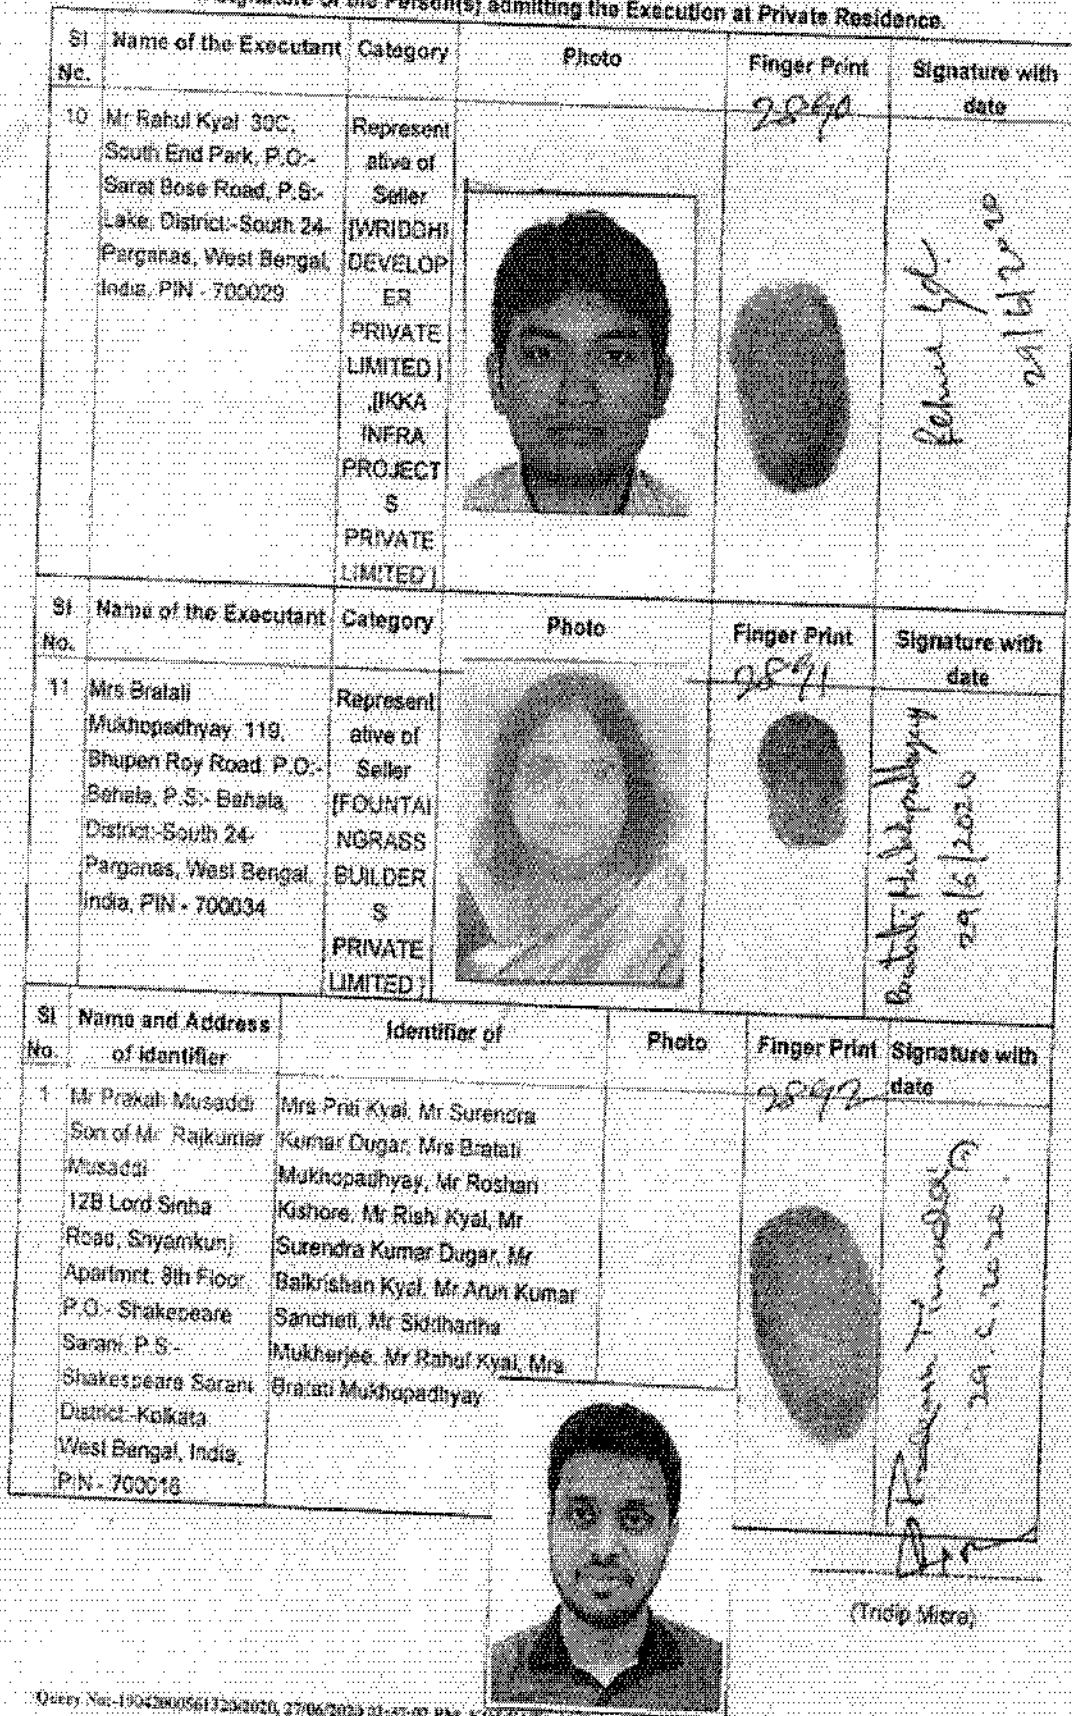 Signature of the Person(s) admitting the Execution at Private Residence.
Sl No. Name of the Executant Category Photo Finger Print Signature with date
2890
10 Mr Rahul Kyal 30C,
South End Park, P.O:-
Sarat Bose Road, P.S:-
Lake, District:-South 24-
Parganas, West Bengal,
India, PIN - 700029
Represent
ative of
Seller
[WRIDDHI
DEVELOP
ER
PRIVATE
LIMITED ]
,[IKKA
INFRA
PROJECT
S
PRIVATE
LIMITED ]
29/6/2020
Sl No. Name of the Executant Category Photo Finger Print Signature with date
2891
11 Mrs Bratati
Mukhopadhyay 119,
Bhupen Roy Road, P.O:-
Behala, P.S:- Behala,
District:-South 24-
Parganas, West Bengal,
India, PIN - 700034
Represent
ative of
Seller
[FOUNTAI
NGRASS
BUILDER
S
PRIVATE
LIMITED ]
Bratati Mukhopadhyay
29/6/2020
Sl No. Name and Address of identifier Identifier of Photo Finger Print Signature with date
2892
1 Mr Prakah Musaddi
Son of Mr Rajkumar
Musaddi
12B Lord Sinha
Road, Shyamkunj
Apartmnt, 8th Floor,
P.O:- Shakepeare
Sarani, P.S:-
Shakespeare Sarani
District:-Kolkata
West Bengal, India,
PIN - 700016
Mrs Priti Kyal, Mr Surendra
Kumar Dugar, Mrs Bratati
Mukhopadhyay, Mr Roshan
Kishore, Mr Rishi Kyal, Mr
Surendra Kumar Dugar, Mr
Balkrishan Kyal, Mr Arun Kumar
Sancheti, Mr Siddhartha
Mukherjee, Mr Rahul Kyal, Mrs
Bratati Mukhopadhyay
29.6.2020
(Tridip Misra)
Query No:-19042000561320/2020, 27/06/2020